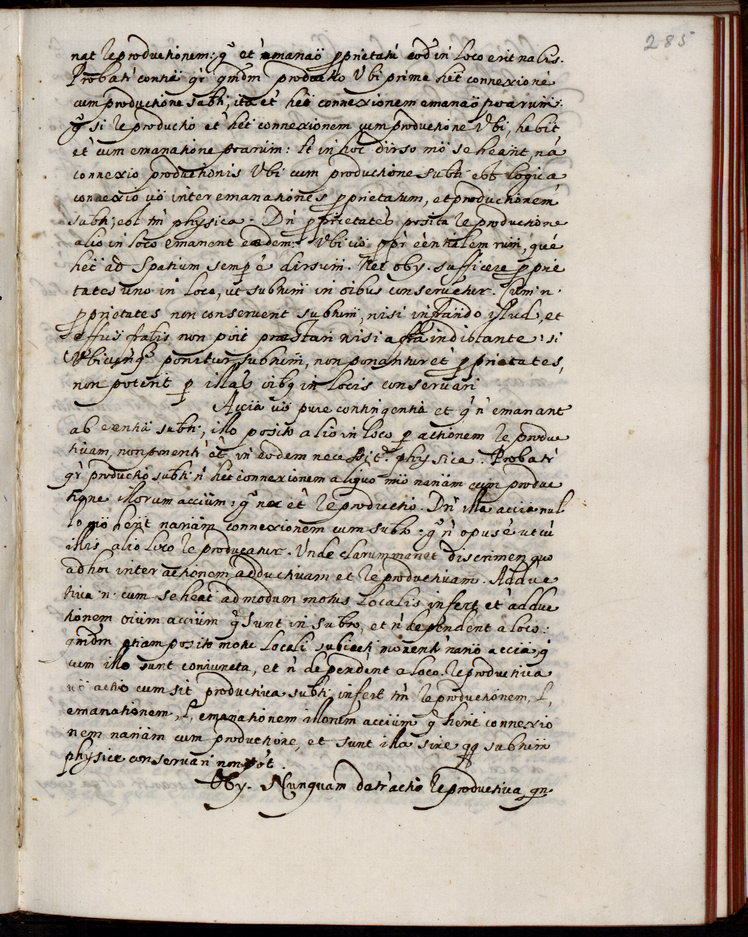 285
nat reproductionem: q̃ et ẽmanaõ pprietatũ eod̃ in loco erit nalis.
Probatr̃ conña qr̃ qmdm̃ productio Vbi prime hẽt connexionẽ
cum productione subti, ita et hẽt connexionem emanaõ
q̃ si reproductio et hẽt connexionem cum productione Vbi, hebit
et cum emanatione At in hoc dirso mõ se heant, nã
connexio productionis Vbi cum productione subti est logica
connexio uõ inter emanationes pprietatum, et productionem
subti, est tm̃ physica. Dñ pprietates posita reproductione
alio in loco emanant eædem. Vbi uõ
hẽt ad spatium semp ẽ dirsum. Nec oby. sufficere pprie
tates uno in loco, ut subtum in oibus conservetur. Num n.
pprietates non conservent subtum, nisi infrãndo illud, et
non põit præstari nisi a frã indistante: si
Vbicunq̃ ponitur subtum, non ponantur et pprietates,
non poterit p illas oibq in locis conservari
Accĩa uõ pure contingentia et q̃ ñ emanant
ab eentiã subti, illo posito alio in loco p actionem reprodu
tivam, non ponentr̃ et in eodem physice. Probatr̃
qr̃ productio subti ñ hẽt connexionem aliquo mõ nanam cum produc
tione illorum accium: q̃ nec et reproductio. Dñ illa accĩa nul
lo mõ hent nanãm connexionem cum subto: q̃ ñ opus ẽ ut cũ
illis alio loco reproducatur. Unde clarum manet discrimen quo
ad hoc inter actionem adductivam et reproductivam. Adduc
tiva n. cum se heat ad modum motus localis infert et adduc
tionem oium accium q̃ sunt in subto, et ñ dependent a loco:
qmdm etiam posito motu locali subiecti movent nario accĩa q̃
cum illo sunt coniuncta, et ñ dependent a loco. Reproductiva
uõ actio cum sit productiva subti infert tm̃ reproductionem, l,
emanationem, l, emanationem illorum accium q̃ hent connexio
nem nanãm cum productione, et sunt illa sine qq subtum
physice conservari non põt.
Oby. Nunquam datr̃ actio reproductiva, qn